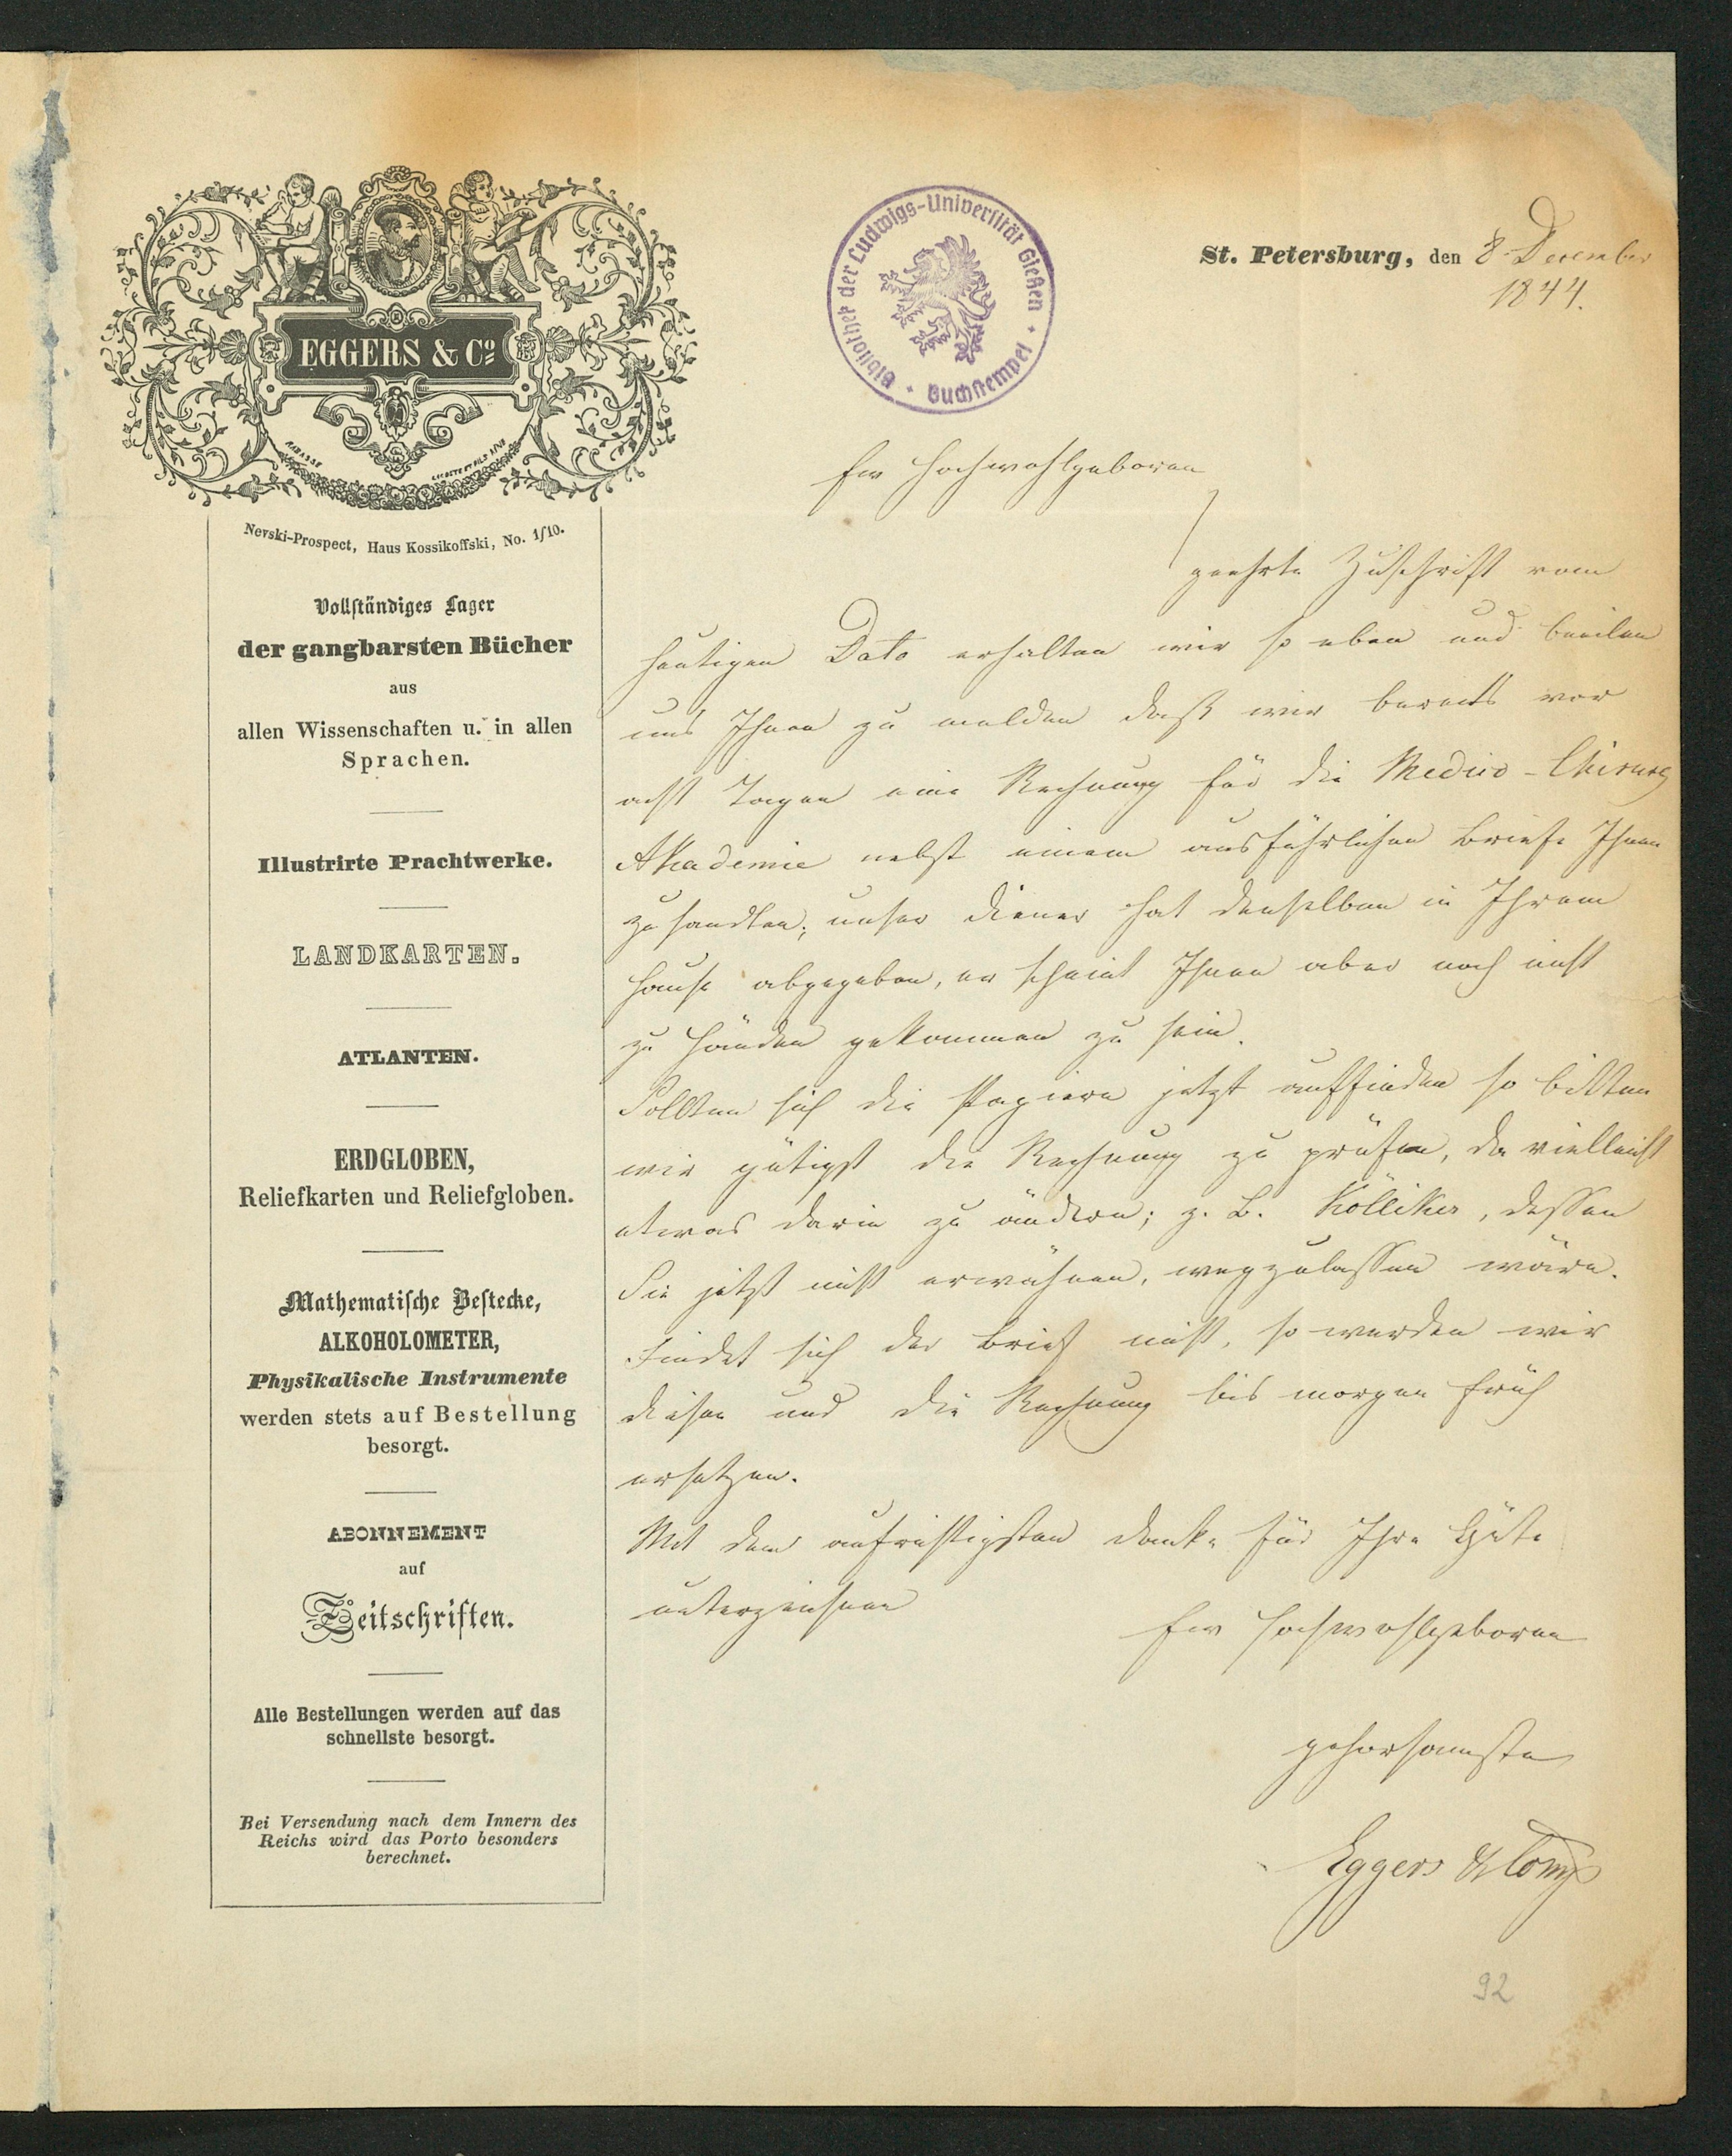 EGGERS & Cº
Nevski-Prospect, Haus Kossikoffski, No. 1/10.
Vollständiges Lager
der gangbarsten Bücher
aus
allen Wissenschaften u. in allen
Sprachen.
Illustrirte Prachtwerke.
LANDKARTEN.
ATLANTEN.
ERDGLOBEN,
Reliefkarten und Reliefgloben.
Mathematische Bestecke,
ALKOHOLOMETER,
Physikalische Instrumente
werden stets auf Bestellung
besorgt.
ABONNEMENT
auf
Zeitschriften.
Alle Bestellungen werden auf das
schnellste besorgt.
Bei Versendung nach dem Innern des
Reichs wird das Porto besonders
berechnet.
Bibliothek der Ludwigs-Universität Gießen
Buchstempel
St. Petersburg, den 8 December
1844.
Ew Hochwohlgeboren
geehrte Zuschrift vom
heutigen Dato erhalten wir so eben und beeilen
uns Ihnen zu melden daß wir bereits vor
acht Tagen eine Rechnung für die Medico-Chirurg
Akademie nebst einem ausführlichen Briefe Ihnen
zusandten; unser Diener hat denselben in Ihrem
Hause abgegeben, er scheint Ihnen aber noch nicht
zu Händen gekommen zu sein.
Sollten sich die Papiere jetzt auffinden so bitten
wir gütigst die Rechnung zu prüfen, da vielleicht
etwas darin zu ändern; z. B. Kölliker, dessen
Sie jetzt nicht erwähnen, wegzulassen wäre.
Findet sich der Brief nicht, so werden wir
diesen und die Rechnung bis morgen früh
ersetzen.
Mit dem aufrichtigsten Danke für Ihre Güte
unterzeichnen
Ew Hochwohlgeboren
gehorsamste
Eggers & Comp
92